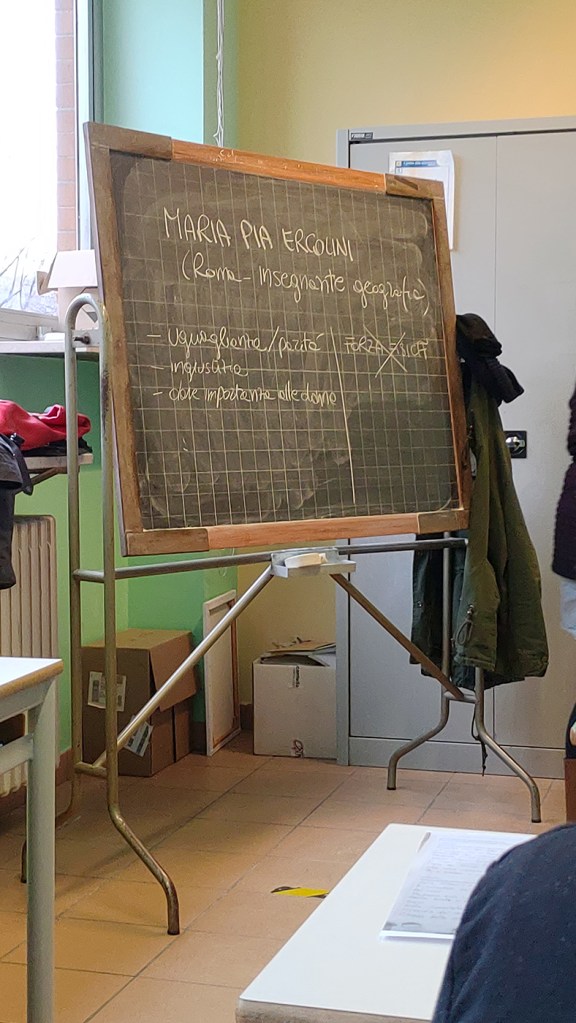 MARIA PIA ERCOLINI
(Roma - Insegnante geografia)
- uguaglianza/parità
- ingiustizia
- dare importanza alle donne
FORZA